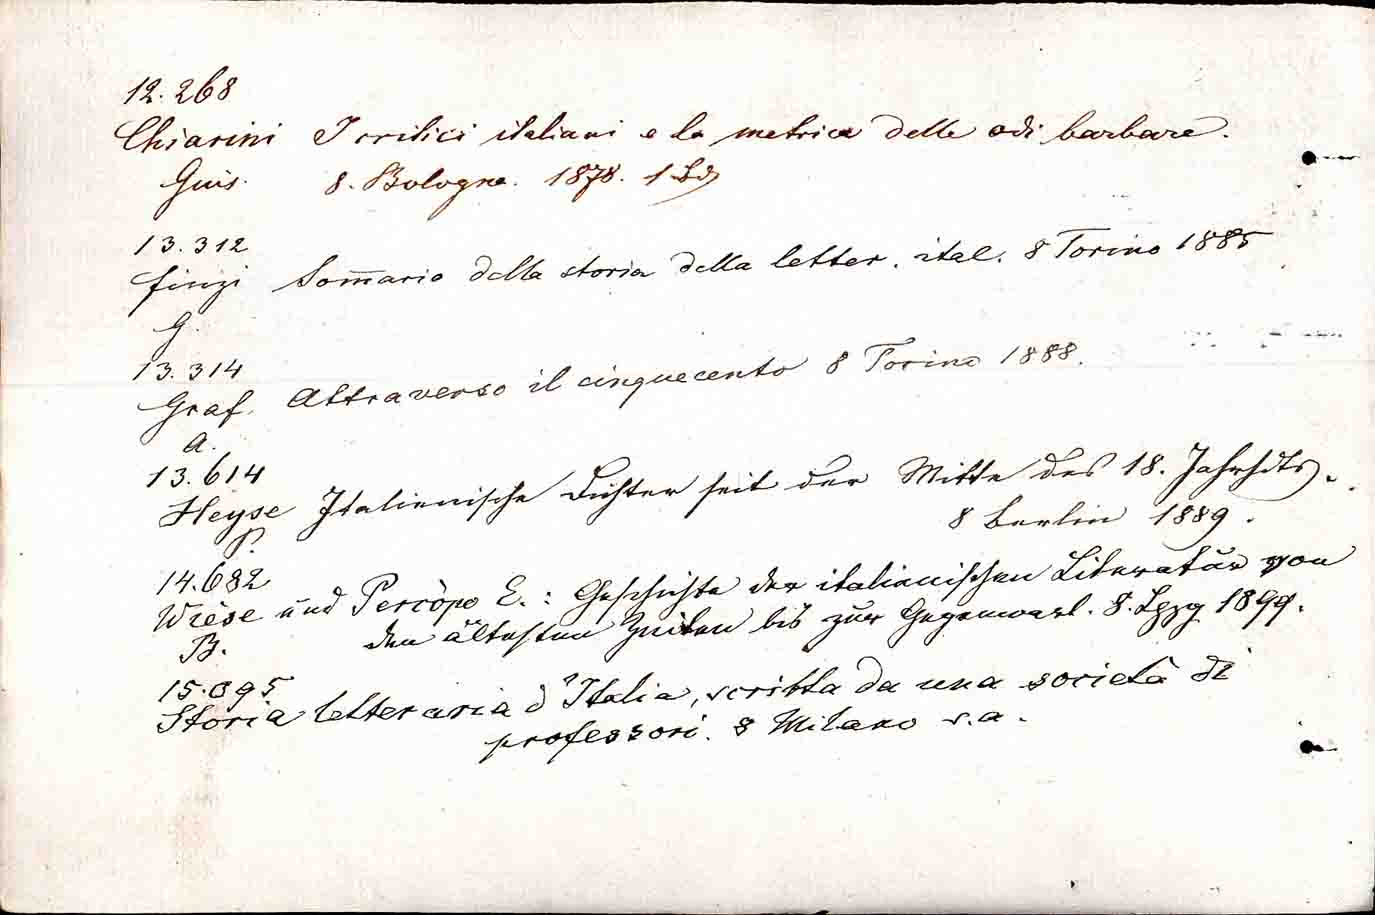 12.268
Chiarini I critici italiani e la metrica delle odi barbare.
Guis. 8. Bologna. 1878. 1 Bd
13.312
Finzi Som̄ario della storia della letter. ital. 8 Torino 1885
G.
13.314
Graf. Attraverso il cinquecento 8 Torino 1888.
A.
13.614
Heyse Italienische Dichter seit der Mitte des 18. Jahrhdts.
P. 8 Berlin 1889.
14.682
Wièse und Percòpo E.: Geschichte der italienischen Literatur von
B. den ältesten Zeiten bis zur Gegenwart. 8. Lpzg 1899.
15.095
Storia letteraria d'Italia, scritta da una società di
professori. 8 Milano s.a.